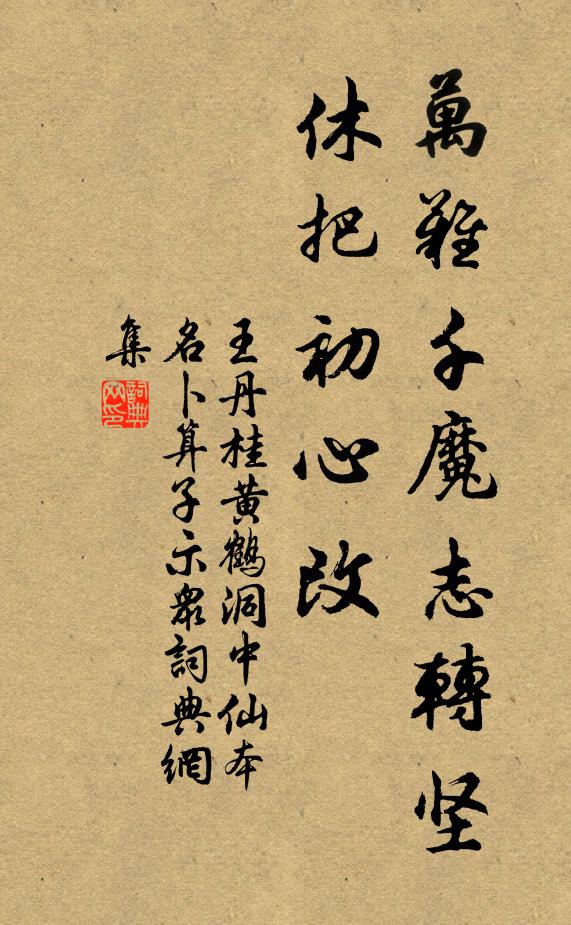 萬難千魔志轉坚
休把初心改
王丹桂黄鶴洞中仙本
名卜算子示眾詞典網
集
詞典
网印